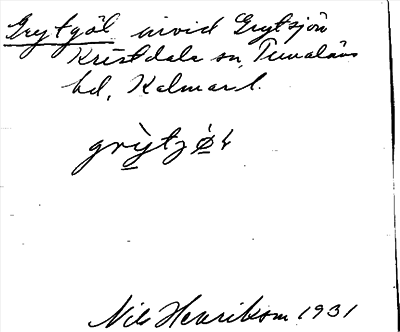 Grytgöl invid Grytsjön
Kristdala sn, Tunaläns
hd, Kalmar l.
Nils Henrikson 1931